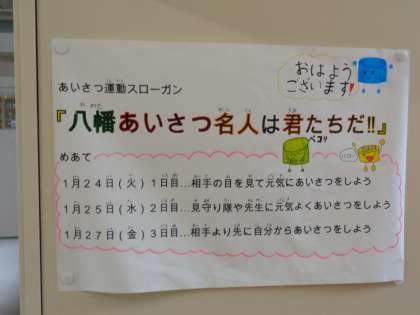 おはよう
ございます!
あいさつ運動スローガン
『八幡あいさつ名人は君たちだ!!』
ペコリ
めあて
1月24日(火) 1日目…相手の目を見て元気にあいさつをしよう
1月25日(水) 2日目…見守り隊や先生に元気よくあいさつをしよう
1月27日(金) 3日目…相手より先に自分からあいさつをしよう